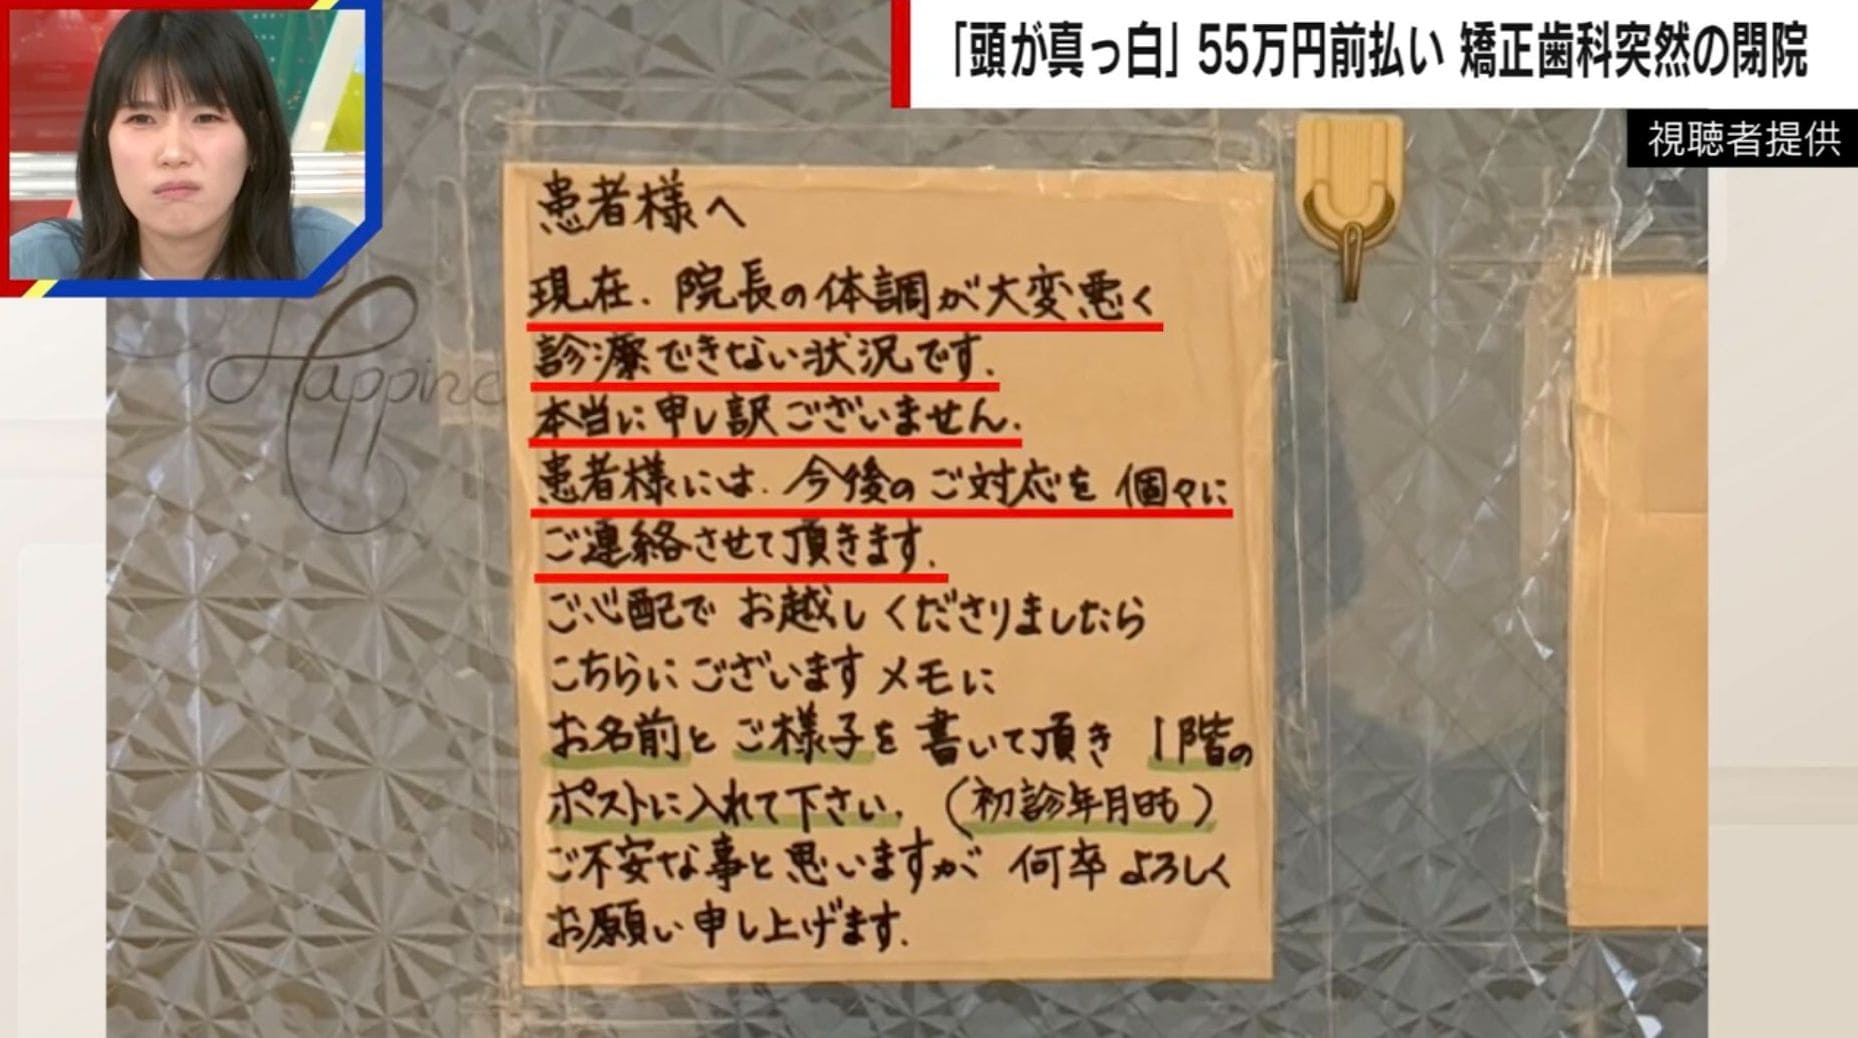 「頭が真っ白」55万円前払い 矯正歯科突然の閉院
視聴者提供
患者様へ
現在、院長の体調が大変悪く
診療できない状況です.
本当に申し訳ございません.
患者様には、今後のご対応を個々に
ご連絡させて頂きます.
ご心配でお越しくださりましたら
こちらにございますメモに
お名前とご様子を書いて頂き 1階の
ポストに入れて下さい.(初診年月日も)
ご不安な事と思いますが 何卒よろしく
お願い申し上げます.